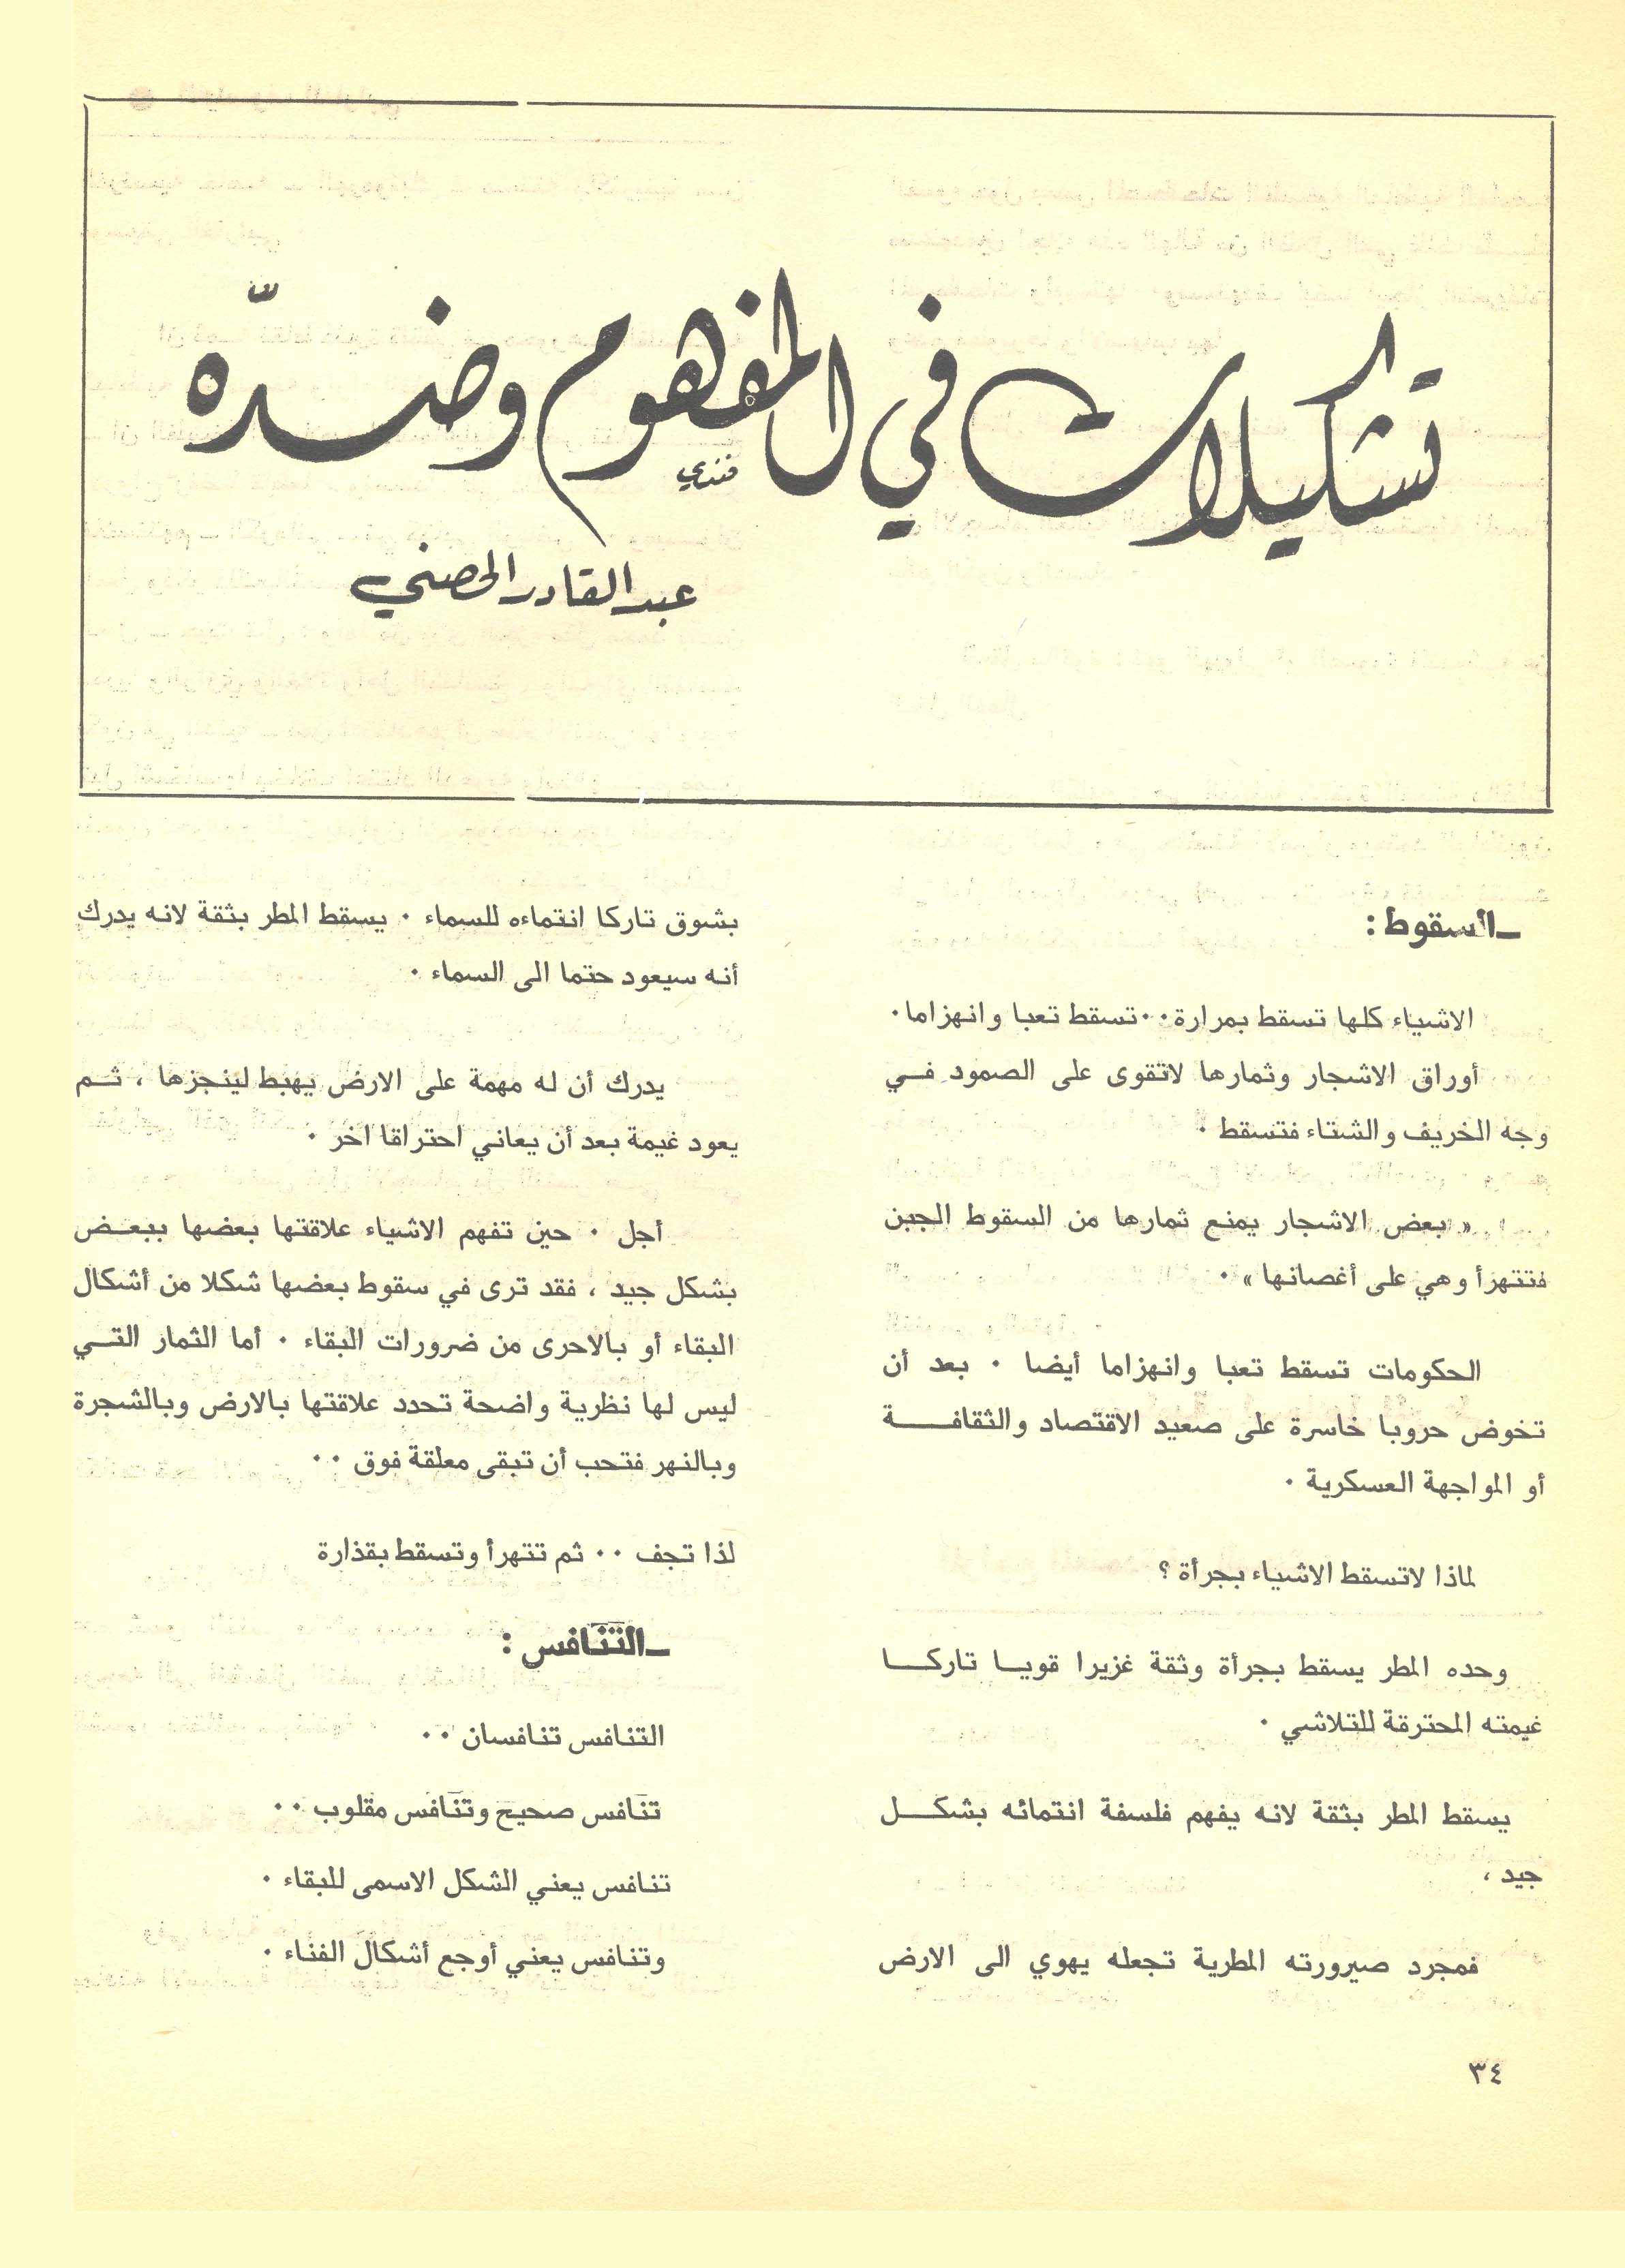 تشكيلات في المفهوم وضدّه
فندي
عبد القادر الحصني
ـ السقوط :
الاشياء كلها تسقط بمرارة ٠٠ تسقط تعبا وانهزاما ٠
أوراق الاشجار وثمارها لاتقوى على الصمود في
وجه الخريف والشتاء فتسقط ٠
« بعض الاشجار يمنع ثمارها من السقوط الجبن
فتتهرأ وهي على أغصانها » ٠
الحكومات تسقط تعبا وانهزاما أيضا ٠ بعد أن
تخوض حروبا خاسرة على صعيد الاقتصاد والثقافة
أو المواجهة العسكرية ٠
لماذا لاتسقط الاشياء بجرأة ؟
وحده المطر يسقط بجرأة وثقة غزيرا قويا تاركا
غيمته المحترقة للتلاشي ٠
يسقط المطر بثقة لانه يفهم فلسفة انتمائه بشكل
جيد ،
فمجرد صيرورته المطرية تجعله يهوي الى الارض
بشوق تاركا انتماءه للسماء ٠ يسقط المطر بثقة لانه يدرك
أنه سيعود حتما الى السماء ٠
يدرك أن له مهمة على الارض يهبط لينجزها ، ثم
يعود غيمة بعد أن يعاني احتراقا اخر ٠
أجل ٠ حين تفهم الاشياء علاقتها بعضها ببعض
بشكل جيد ، فقد ترى في سقوط بعضها شكلا من أشكال
البقاء أو بالاحرى من ضرورات البقاء ٠ أما الثمار التي
ليس لها نظرية واضحة تحدد علاقتها بالارض وبالشجرة
وبالنهر فتحب أن تبقى معلقة فوق ٠٠
لذا تجف ٠٠ ثم تتهرأ وتسقط بقذارة
ـ التنافس :
التنافس تنافسان ٠٠
تنافس صحيح وتنافس مقلوب ٠٠
تنافس يعني الشكل الاسمى للبقاء ٠
وتنافس يعني أوجع أشكال الفناء ٠
٣٤